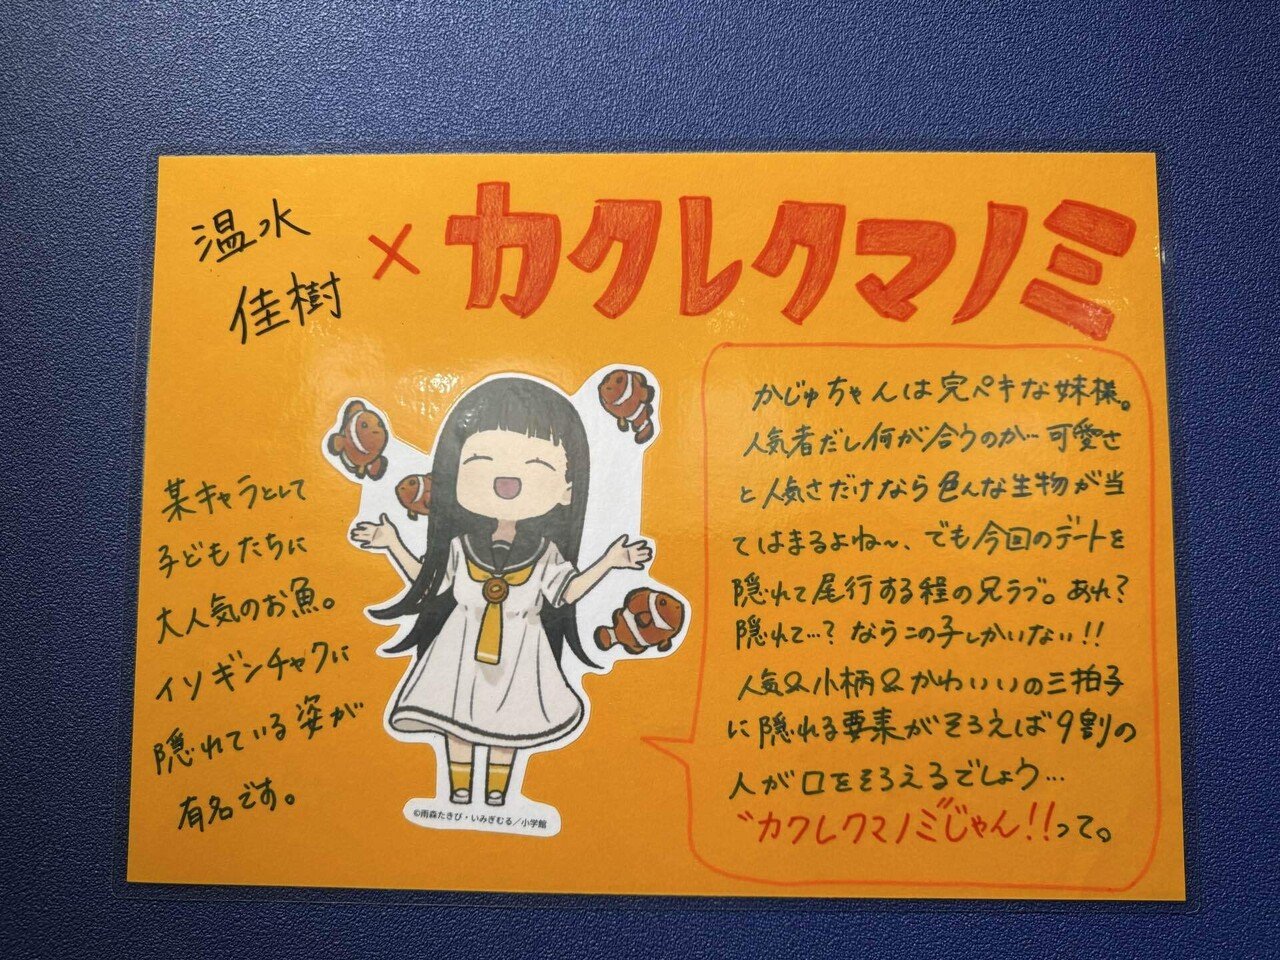 温水
佳樹
×カクレクマノミ
某キャラとして
子どもたちに
大人気のお魚。
イソギンチャクに
隠れている姿が
有名です。
©雨森たきび・いみぎむる／小学館
かじゅちゃんは完ペキな妹様。
人気者だし何が合うのか…可愛さ
と人気さだけなら色んな生物が当
てはまるよね〜、でも今回のデートを
隠れて尾行する程の兄ラブ。あれ?
隠れて…?ならこの子しかいない!!
人気&小柄&かわいいの三拍子
に隠れる要素がそろえば9割の
人が口をそろえるでしょう…
"カクレクマノミ"じゃん!!って。